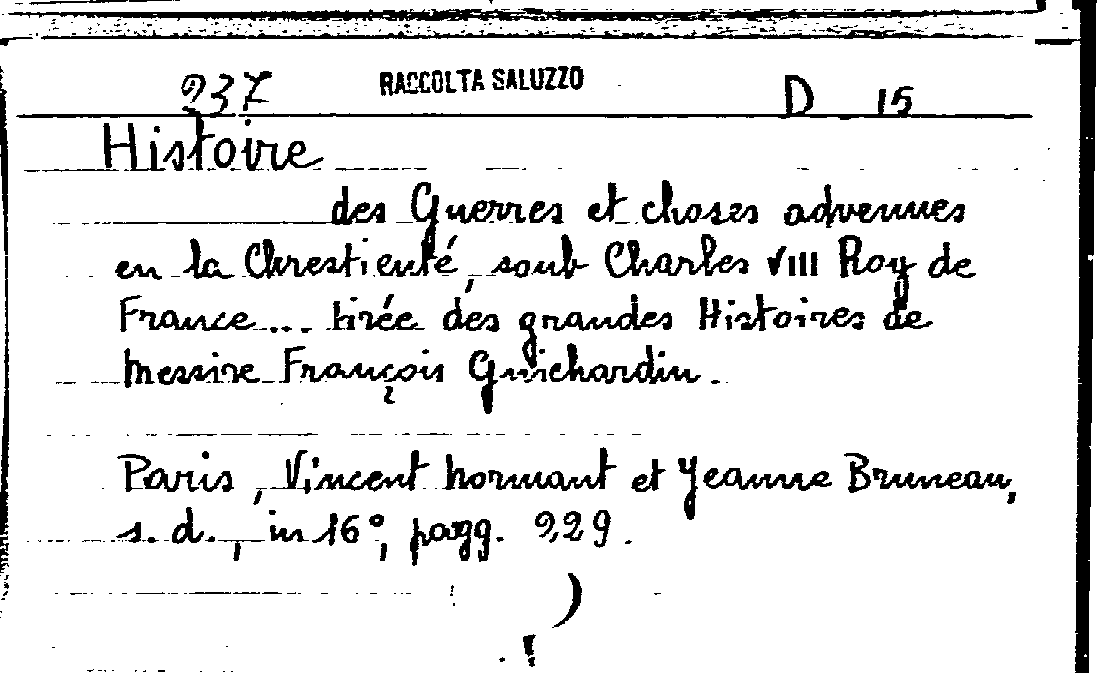 237 RACCOLTA SALUZZO D 15
Histoire
des Guerres et choses advenues
en la Chrestienté, soub Charles VIII Roy de
France... tirée des grandes Histoires de
messire François Guichardin.
Paris, Vincent Normant et Jeanne Bruneau,
s. d., in 16°, pagg. 229.